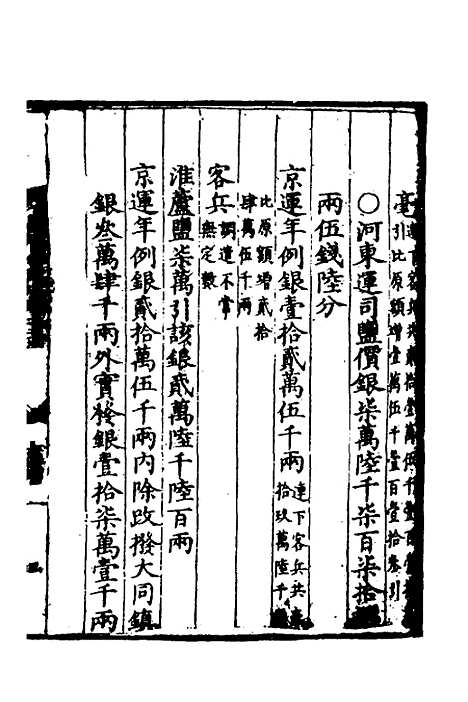 毫
引比原額增壹萬伍千壹百壹拾叁引
○河東運司鹽價銀柒萬陸千柒百柒拾
兩伍錢陸分
京運年例銀壹拾貳萬伍千兩連下客兵共
拾玖萬陸千
比原額增貳拾
肆萬伍千兩
客兵調遣不常
無定數
淮蘆鹽柒萬引該銀貳萬陸千陸百兩
京運年例銀貳拾萬伍千兩內除改撥大同鎮
銀叁萬肆千兩外實發銀壹拾柒萬壹千兩